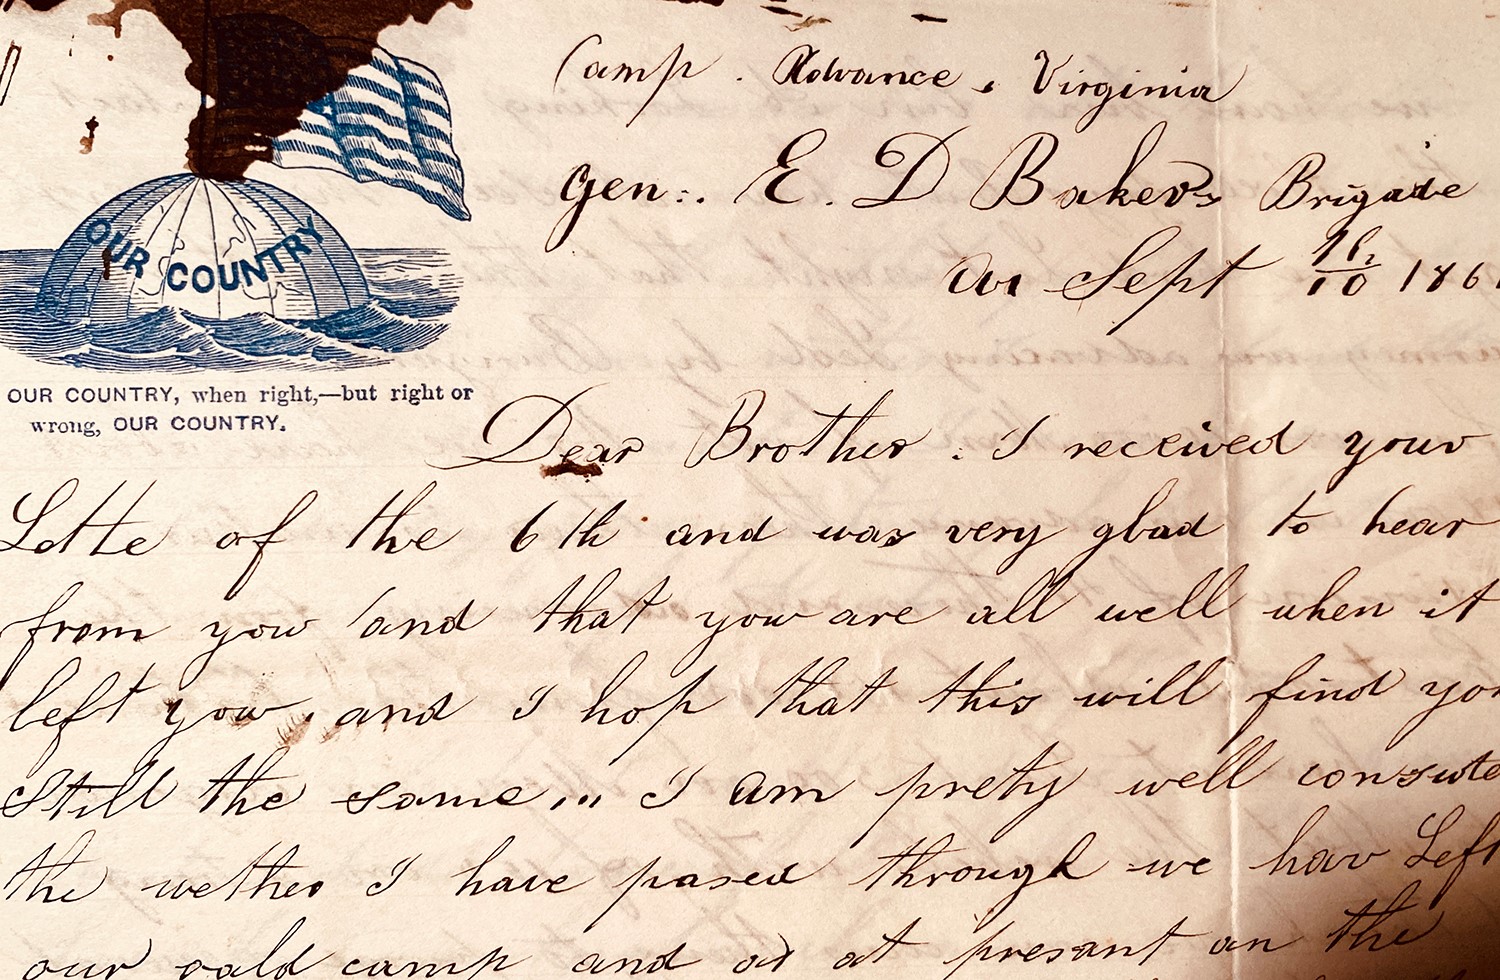 Camp. Advance, Virginia
Gen:. E. D Baker's Brigade
on Sept 10 186
OUR COUNTRY
OUR COUNTRY, when right,—but right or
wrong, OUR COUNTRY.
Dear Brother: I received your
Lette of the 6th and was very glad to hear
from you and that you are all well when it
left you, and I hop that this will find you
Still the same... I am prety well
the wether I have pased through we hav Left
our oald camp and at presant on the